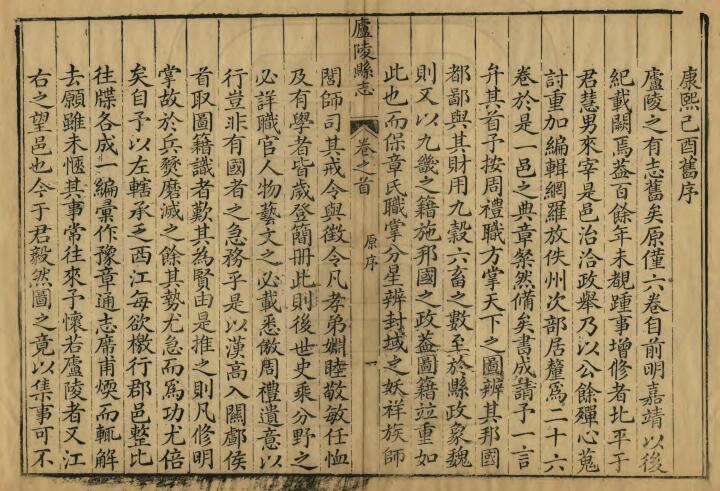 康熙己酉舊序
廬陵之有志舊矣原僅六卷自前明嘉靖以後
紀載闕焉葢百餘年未覩踵事增修者北平于
君慧男來宰是邑治洽政舉乃以公餘殫心蒐
討重加編輯網羅放佚州次部居釐爲二十六
卷於是一邑之典章粲然備矣書成請予一言
弁其首予按周禮職方掌天下之圖辨其邦國
都鄙與其財用九穀六畜之數至於縣政象魏
則又以九畿之籍施邦國之政葢圖籍竝重如
此也而保章氏職掌分星辨封域之妖祥族師
廬陵縣志
卷之首
原序
一
閭師司其戒令與徵令凡孝弟婣睦敬敏任恤
及有學者皆歲登簡冊此則後世史乘分野之
必詳職官人物藝文之必載悉倣周禮遺意以
行豈非有國者之急務乎是以漢高入關酇侯
首取圖籍識者歎其為賢由是推之則凡修明
掌故於兵燹磨滅之餘其勢尤急而爲功尤倍
矣自予以左轄承乏西江每欲檄行郡邑整比
往牒各成一編彙作豫章通志席甫煖而輒解
去願雖未愜其事常往來予懷若廬陵者又江
右之望邑也今于君毅然圖之竟以集事可不